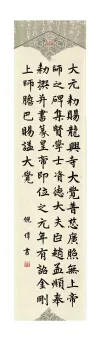 大元勅賜龍興寺大覺普慈廣照無上帝
師之碑集賢學士資德大夫臣趙孟頫奉
勅撰并書篆皇帝即位之元年有詔金剛
上師膽巴賜謚大覺
倪偉書